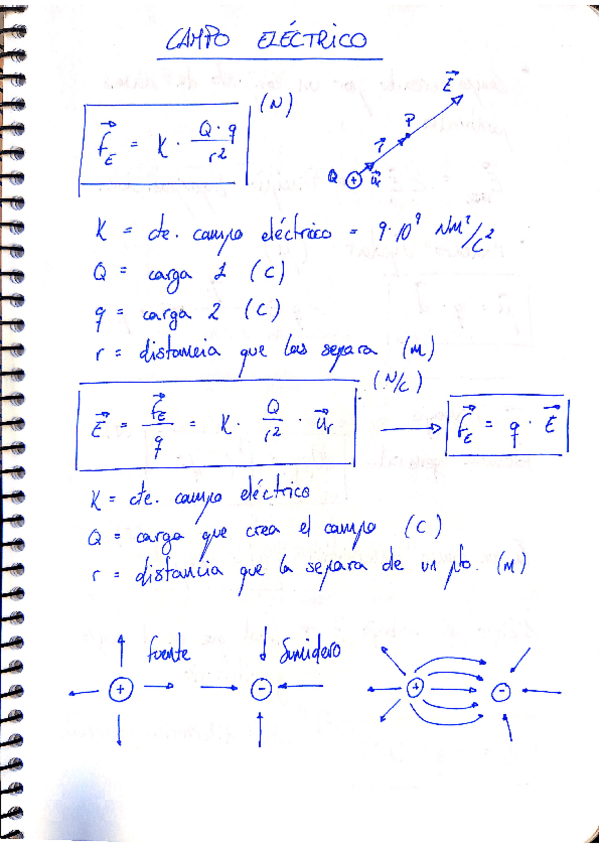 CAMPO ELÉCTRICO
F⃗_E = K · Q·q / r² (N)
E⃗
P
r⃗
Q + u⃗
K = cte. campo eléctrico = 9·10⁹ Nm²/C²
Q = carga 1 (C)
q = carga 2 (C)
r = distancia que las separa (m)
E⃗ = F⃗_E / q = K · Q / r² · u⃗_r (N/C) → F⃗_E = q · E⃗
K = cte. campo eléctrico
Q = carga que crea el campo (C)
r = distancia que la separa de un pto. (m)
fuente Sumidero
+ - + -